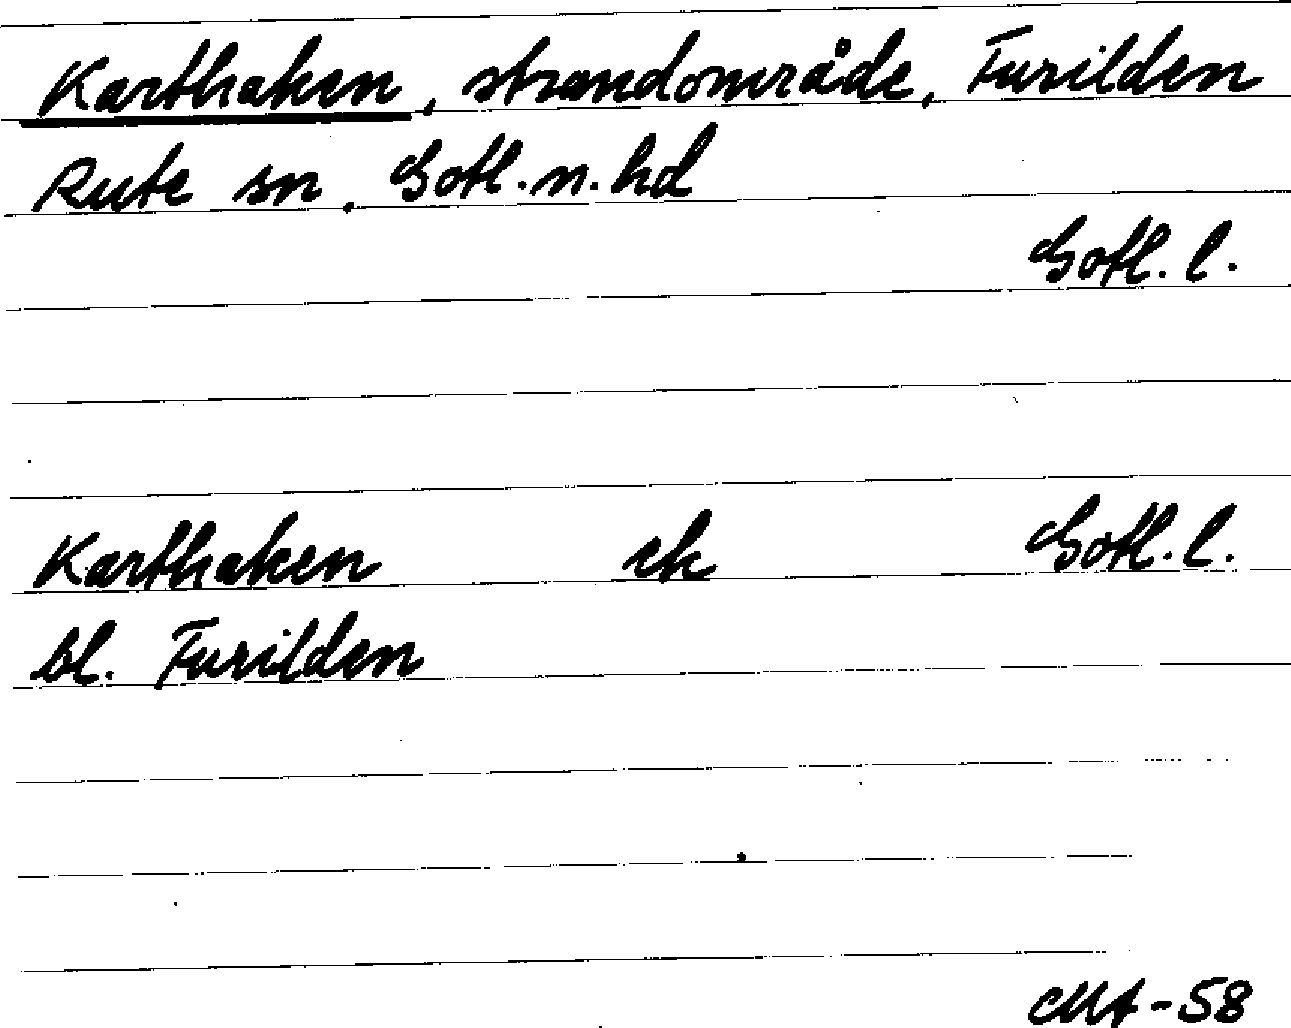 Karthaken, strandområde, Furilden
Rute sn, Gotl. n. hd
Gotl. l.
Karthaken ek Gotl. l.
bl. Furilden
MA-58